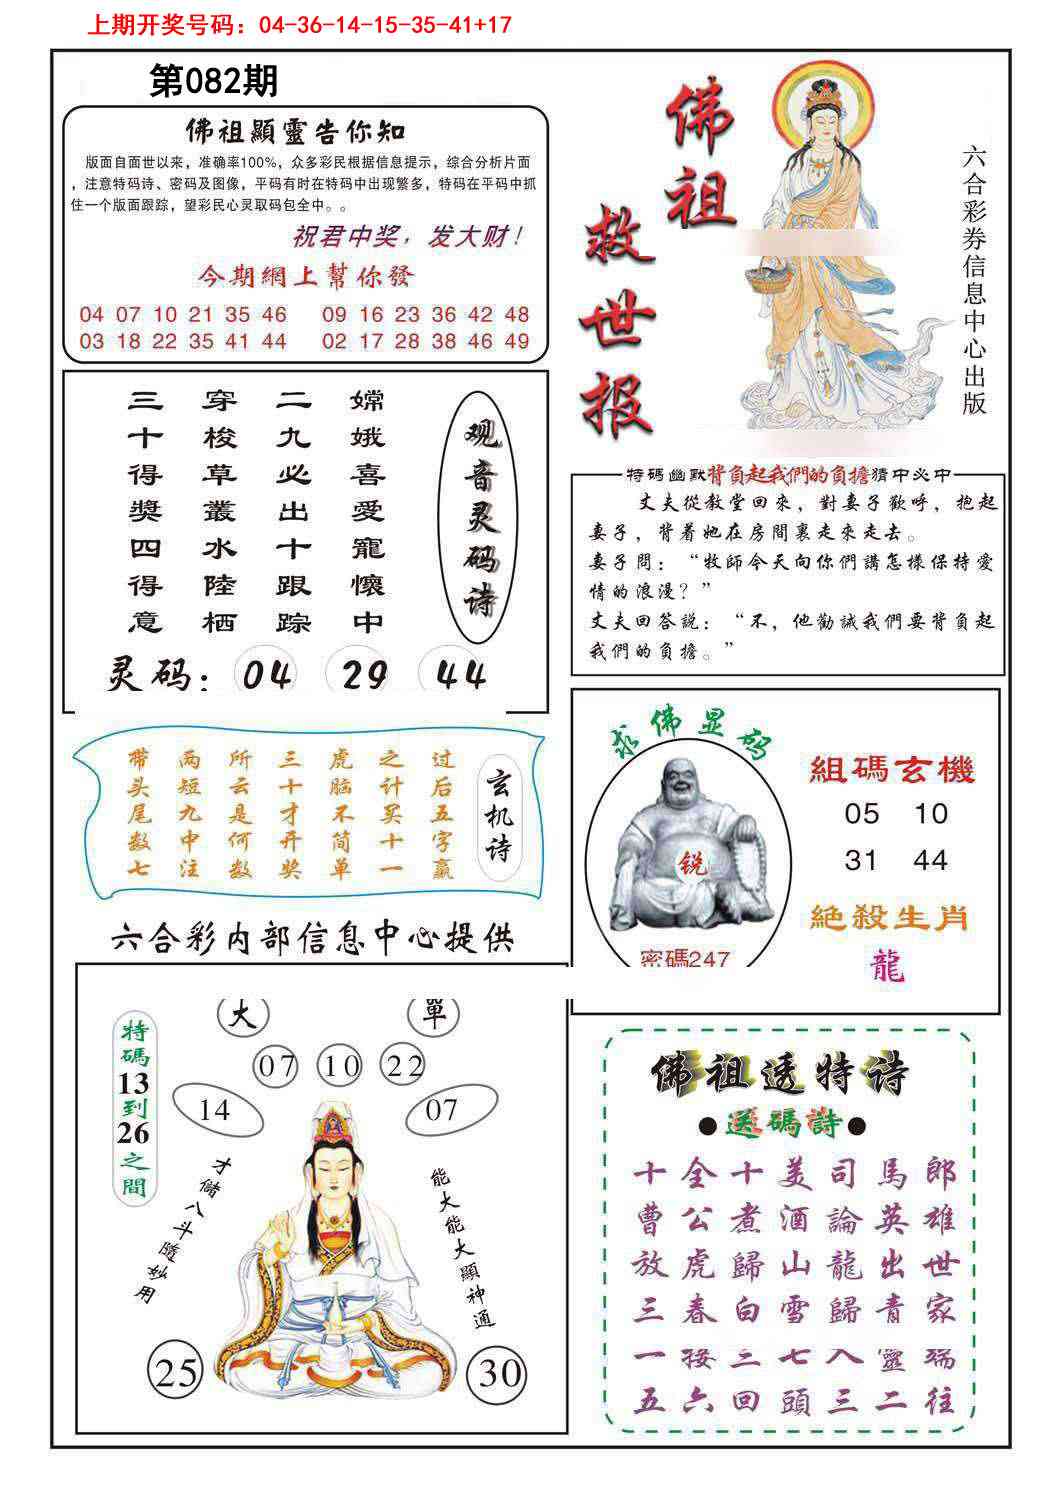 上期开奖号码：04-36-14-15-35-41+17
第082期
佛祖顯靈告你知
版面自面世以来，准确率100%，众多彩民根据信息提示，综合分析片面
，注意特码诗、密码及图像，平码有时在特码中出现繁多，特码在平码中抓
住一个版面跟踪，望彩民心灵取码包全中。。
祝君中奖，发大财！
今期網上幫你發
04 07 10 21 35 46 09 16 23 36 42 48
03 18 22 35 41 44 02 17 28 38 46 49
佛祖
救世报
六合彩券信息中心出版
观音灵码诗
嫦娥喜愛寵懷中
二九必出十跟踪
穿梭草叢水陸栖
三十得獎四得意
灵码：04 29 44
特碼幽默背負起我們的負擔猜中必中
丈夫從教堂回來，對妻子歡呼，抱起
妻子，背着她在房間裏走來走去。
妻子問：“牧師今天向你們講怎樣保持愛
情的浪漫？”
丈夫回答説：“不，他勸誡我們要背負起
我們的負擔。”
玄机诗
过后五字赢
之计买十一
虎脑不简单
三十才开奖
所云是何数
两短九中注
带头尾数七
求佛显码
锐
密碼247
組碼玄機
05 10
31 44
絕殺生肖
龍
六合彩内部信息中心提供
大 單
特碼13到26之間
07 10 22
14 07
才儲八斗隨妙用
能大能大顯神通
25 30
佛祖透特诗
●送碼詩●
十全十美司馬郎
曹公煮酒論英雄
放虎歸山龍出世
三春白雪歸青家
一接二七入靈端
五六回頭三二往